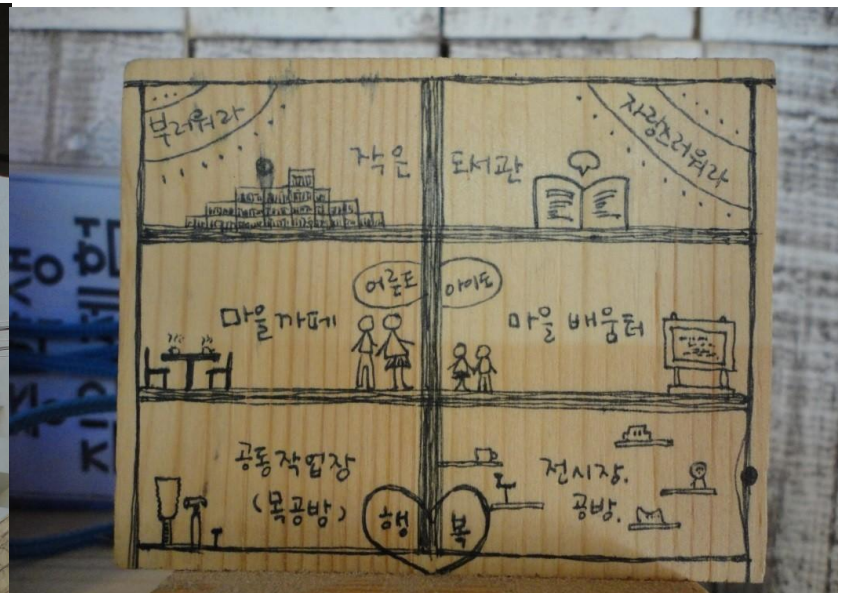 부러워라
작은 도서관
자랑스러워라
어른도 아이도
마을까페
마을 배움터
공동작업장
(목공방)
전시장.
공방.
행복